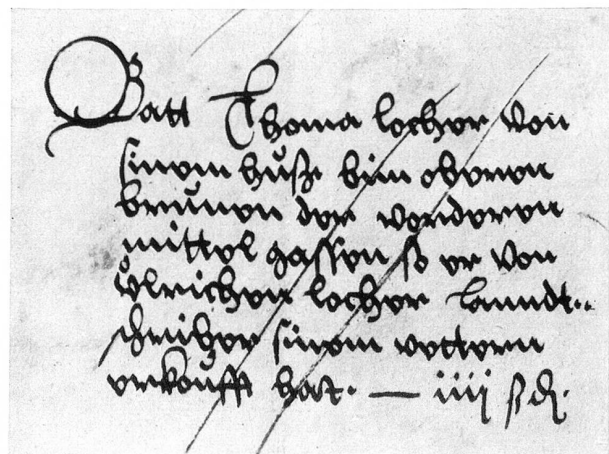 Gatt Thoma locher von
sinem huße bim oberen
brunen der vorderen
mittel gassen so er von
ůlrichen locher Lanndt..
schriber sinem vettern
erkoufft hat. — iiij ß ₰.